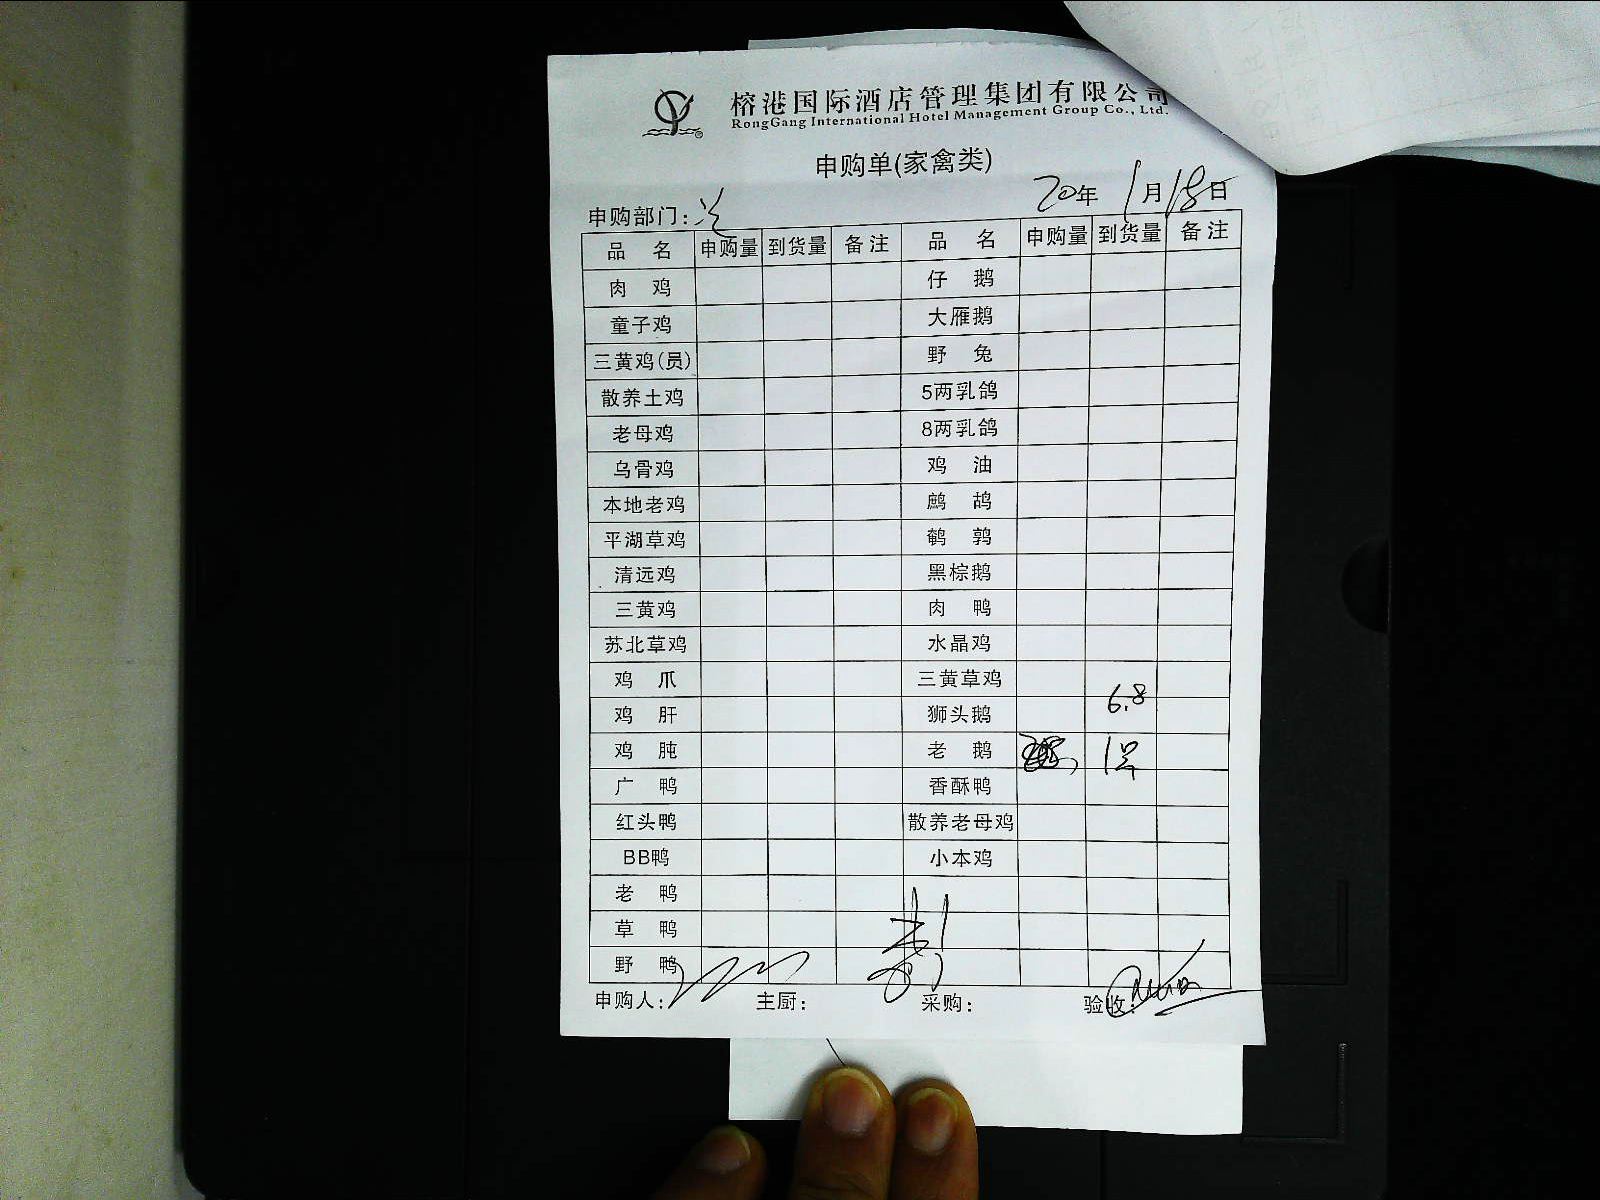 榕港国际酒店管理集团有限公司
RongGang International Hotel Management Group Co., Ltd.
申购单(家禽类)
申购部门: 20年1月18日
品 名 申购量 到货量 备注 品 名 申购量 到货量 备注
肉 鸡 仔 鹅
童子鸡 大雁鹅
三黄鸡(员) 野 兔
散养土鸡 5两乳鸽
老母鸡 8两乳鸽
乌骨鸡 鸡 油
本地老鸡 鹧 鸪
平湖草鸡 鹌 鹑
清远鸡 黑棕鹅
三黄鸡 肉 鸭
苏北草鸡 水晶鸡
鸡 爪 三黄草鸡
鸡 肝 狮头鹅 6.8
鸡 肫 老 鹅 1只
广 鸭 香酥鸭
红头鸭 散养老母鸡
BB鸭 小本鸡
老 鸭
草 鸭
野 鸭
申购人: 主厨: 采购: 验收: